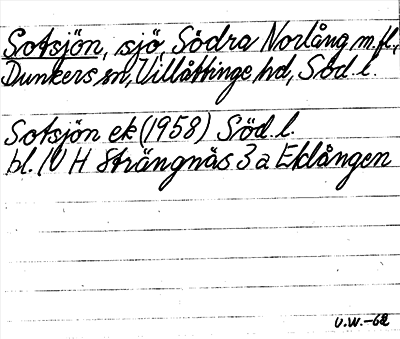 Sotsjön, sjö, Södra Norlång m.fl.,
Dunkers sn, Villåttinge hd, Söd. l.
Sotsjön ek (1958) Söd. l.
bl. 10 H Strängnäs 3 a Eklången
U.W.-62